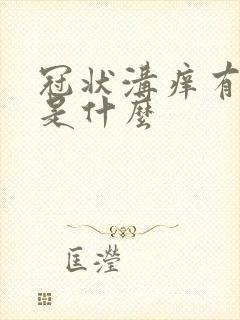 冠状溝痒有
是什麼
匡瀅